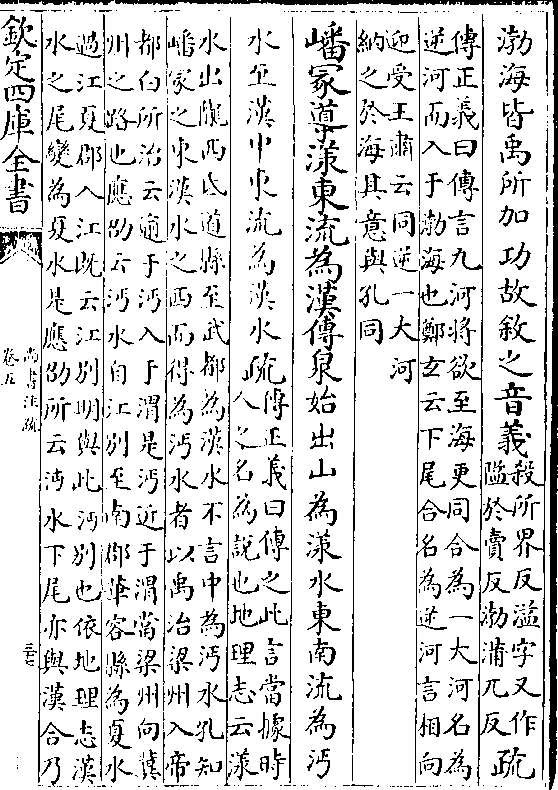 渤海皆禹所加功故敘之音義殺所界反濫字又作
濫於賣反渤蒲兀反疏
傳正義曰傳言九河將欲至海更同合為一大河名為
逆河而入于渤海也鄭玄云下尾合名為逆河言相向
迎受王肅云同逆一大河
納之於海其意與孔同
嶓冢導漾東流為漢傳泉始出山為漾水東南流為沔
水至漢中東流為漢水疏傳正義曰傳之此言當據時
人之名為說也地理志云漾
水出隴西氐道縣至武都為漢水不言中為沔水孔知
嶓冢之東漢水之西而得為沔水者以禹治梁州入帝
都白所治云逾于沔入于渭是沔近于渭當梁州向冀
州之路也應劭云沔水自江別至南郡華容縣為夏水
過江夏郡入江既云江別明與此沔別也依地理志漢
水之尾變為夏水是應劭所云沔水下尾亦與漢合乃
欽定四庫全書
尚書注疏
卷五